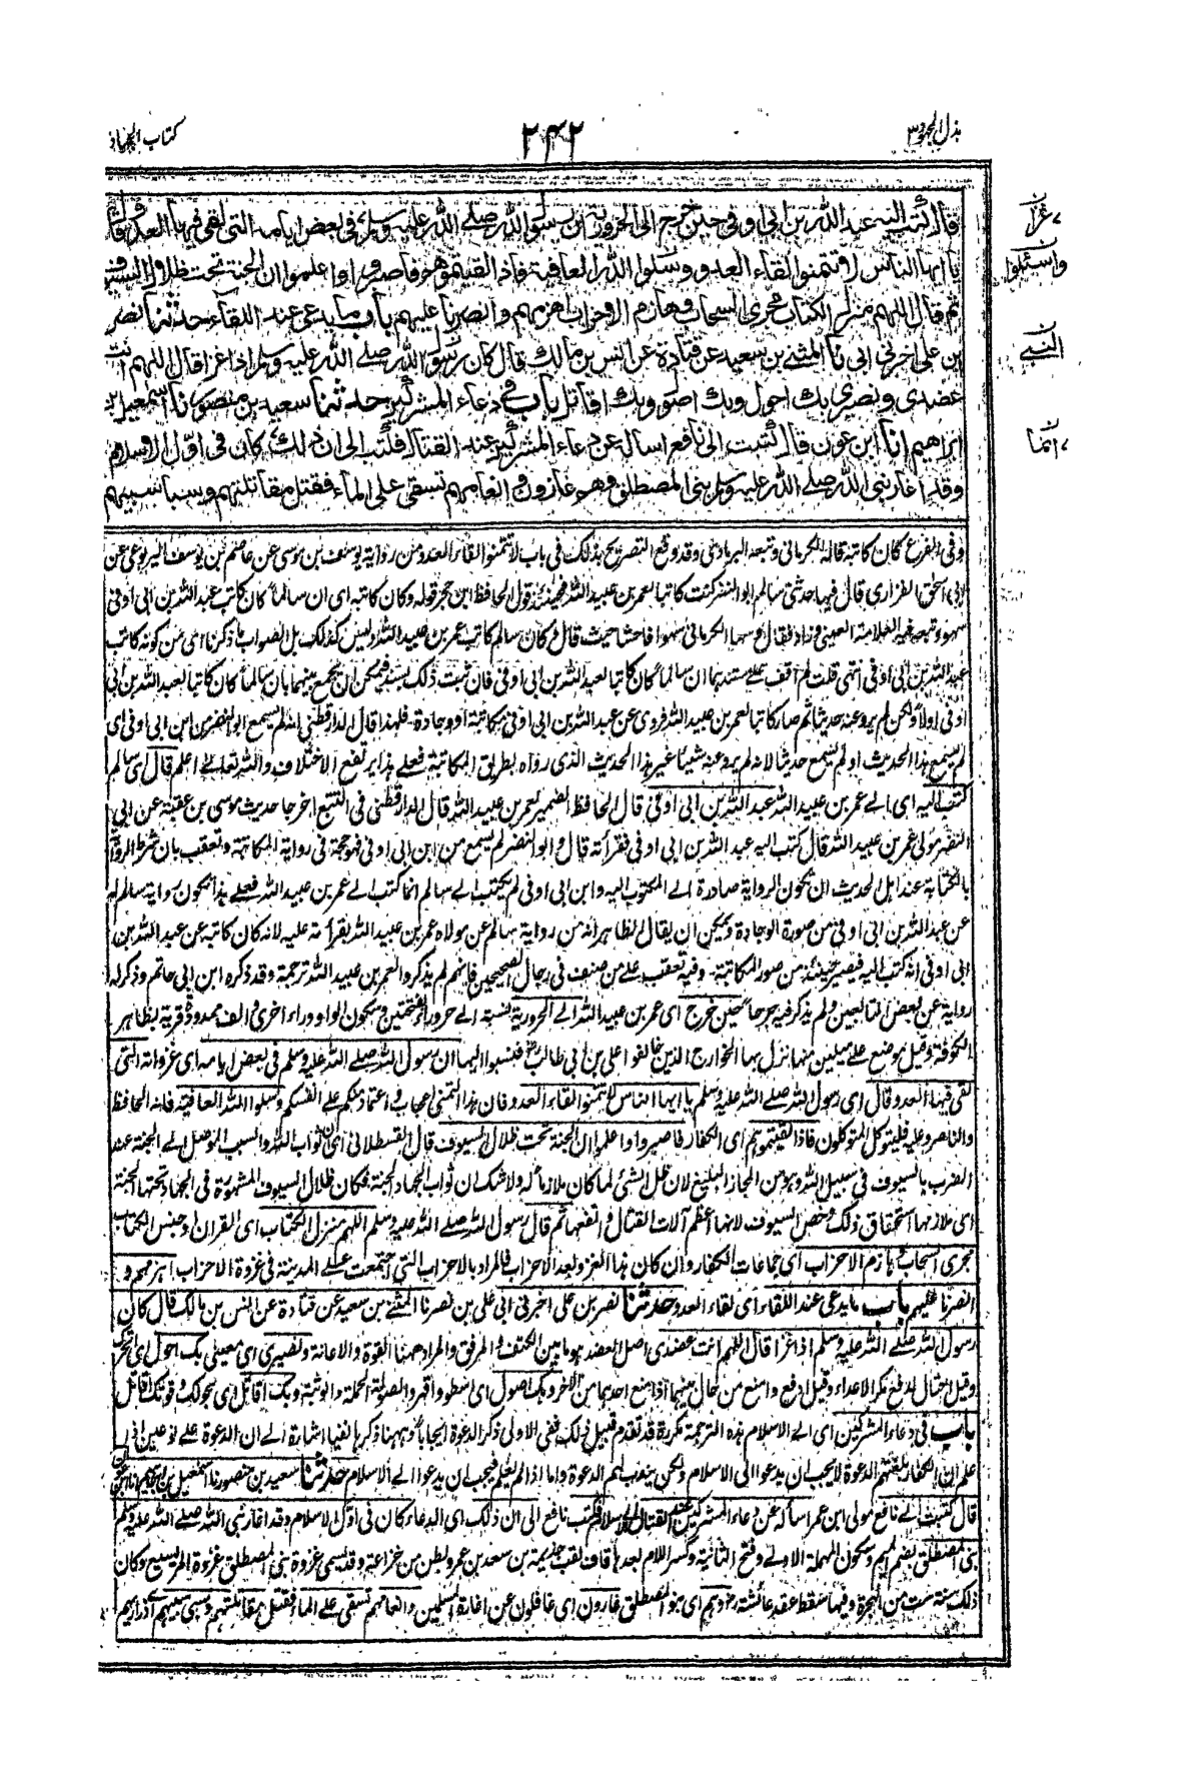 بذل المجهود ٣
٢٤٢
كتاب الجهاد
قال كتب اليه عبد الله بن ابى اوفى حين خرج الى الحرورية ان رسول الله صلے الله عليه وسلم فى بعض ايامه التى لقى فيها العدو قال
يا ايها الناس لا تتمنوا لقاء العدو وسلوا الله العافية فاذا لقيتموهم فاصبروا واعلموا ان الجنة تحت ظلال السيوف
ثم قال اللهم منزل الكتاب مجرى السحاب وهازم الاحزاب اهزمهم وانصرنا عليهم باب ما يدعى عند اللقاء حدثنا نصر
ابن على اخبرنى ابى نا المثنے بن سعيد عن قتادة عن انس بن مالك قال كان رسول الله صلے الله عليه وسلم اذا غزا قال اللهم انت
عضدى ونصيرى بك احول وبك اصول وبك اقاتل باب فى دعاء المشركين حدثنا سعيد بن منصور نا اسمعيل بن
ابراهيم انا ابن عون قال كتبت الى نافع اساله عن دعاء المشركين عند القتال فكتب الى ان ذلك كان فى اول الاسلام
وقد اغار نبى الله صلے الله عليه وسلم بنى المصطلق وهم غارون وانعامهم تسقى على الماء فقتل مقاتلتهم وسبا سبيهم
غزا
واسئلوا
النبى
انما
وفى الفرع كان كاتبه قاله الكرمانى وتبعه البرماوى وقد وقع التصريح بذلك فى باب لا تتمنوا لقاء العدو من رواية يوسف بن موسى عن عاصم بن يوسف اليربوعى عن
ابى اسحق الفزارى قال فيها حدثنى سالم ابو النضر كنت كاتبا لعمر بن عبيد الله فحينئذ قول الحافظ ابن حجر قوله وكان كاتبه اى ان سالما كان كاتب عبد الله بن ابى اوفى
سهو وتبعه فيه العلامة العينى وزاد فقال وسها الكرمانى سهوا فاحشا حيث قال وكان سالم كاتب عمر بن عبيد الله وليس كذلك بل الصواب ما ذكرنا اى من كونه كاتب
عبد الله بن ابى اوفى انتهى قلت لم اقف علے سند بهما ان سالما كان كاتبا لعبد الله بن ابى اوفى فان ثبت ذلك بسند فيمكن ان يجمع بينهما بان سالما كان كاتبا لعبد الله بن ابى
اوفى اولا ولكن لم يرو عنه حديثا ثم صار كاتبا لعمر بن عبيد الله فروى عن عبد الله بن ابى اوفى مكاتبة او وجادة فلهذا قال الدارقطنى انه لم يسمع ابو النضر من ابن ابى اوفى اى
لم يسمع هذا الحديث او لم يسمع حديثا لانه لم يرو عنه شيئا غير هذا الحديث الذى رواه بطريق المكاتبة فعلے هذا يرتفع الاختلاف والله تعالے اعلم قال اى سالم
كتب اليه اى الے عمر بن عبيد الله عبد الله بن ابى اوفى قال الحافظ الضمير لعمر بن عبيد الله قال الدارقطنى فى التتبع اخرجا حديث موسى بن عقبة عن ابى
النضر مولى عمر بن عبيد الله قال كتب اليه عبد الله بن ابى اوفى فقرأته قال وابو النضر لم يسمع من ابن ابى اوفى فهو حجة فى رواية المكاتبة وتعقب بان شرط الرواية
بالكتابة عند اهل الحديث ان تكون الرواية صادرة الے المكتوب اليه وابن ابى اوفى لم يكتب الے سالم انما كتب الے عمر بن عبيد الله فعلے هذا تكون رواية سالم له
عن عبد الله بن ابى اوفى من صورة الوجادة ويمكن ان يقال الظاهر انه من رواية سالم عن مولاه عمر بن عبيد الله بقرأته عليه لانه كان كاتبه عن عبد الله بن
ابى اوفى انه كتب اليه فيصير حينئذ من صور المكاتبة وفيه تعقب علے من صنف فى رجال الصحيحين فانهم لم يذكروا لعمر بن عبيد الله ترجمة وقد ذكره ابن ابى حاتم وذكر له
رواية عن بعض التابعين ولم يذكر فيه جرحا حين خرج اى عمر بن عبيد الله الے الحرورية نسبة الے حروراء بفتحتين وسكون الواو وراء اخرى والف ممدودة قرية بظاهر
الكوفة وقيل موضع علے ميلين منها نزل بها الخوارج الذين خالفوا على بن ابى طالب فنسبوا اليها ان رسول الله صلے الله عليه وسلم فى بعض ايامه اى غزواته التى
لقى فيها العدو قال اى رسول الله صلے الله عليه وسلم يا ايها الناس لا تتمنوا لقاء العدو فان هذا التمنى اعجاب واعتماد منكم علے انفسكم وسلوا الله العافية فانه الحافظ
والناصر وعليه فليتوكل المتوكلون فاذا لقيتموهم اى الكفار فاصبروا واعلموا ان الجنة تحت ظلال السيوف قال القسطلانى اى ان ثواب الله والسبب الموصل الے الجنة عند
الضرب بالسيوف فى سبيل الله وهو من المجاز البليغ لان ظل الشئ لما كان ملازما له ولا شك ان ثواب الجهاد الجنة فكان ظلال السيوف المشهورة فى الجهاد تحتها الجنة
اى ملازمها استحقاق ذلك وخص السيوف لانها اعظم آلات القتال وانفعها ثم قال رسول الله صلے الله عليه وسلم اللهم منزل الكتاب اى القران او جنس الكتاب
مجرى السحاب وهازم الاحزاب اى جماعات الكفار وان كان هذا الغزو بعد الاحزاب فالمراد بالاحزاب التى اجتمعت علے المدينة فى غزوة الاحزاب اهزمهم و
انصرنا عليهم باب ما يدعى عند اللقاء اى لقاء العدو حدثنا نصر بن على اخبرنى ابى على بن نصر نا المثنے بن سعيد عن قتادة عن انس بن مالك قال كان
رسول الله صلے الله عليه وسلم اذا غزا قال اللهم انت عضدى اصل العضد هو ما بين الكتف والمرفق والمراد ههنا القوة والاعانة ونصيرى اى معينى بك احول اى اتحرك
وقيل احتال لدفع مكر الاعداء وقيل ادفع وامنع من حال بينهما اذا منع احدهما من الآخر وبك اصول اى اسطو واقهر والصولة الحملة والوثبة وبك اقاتل اى بحولك وقوتك اقاتل
باب فى دعاء المشركين اى الے الاسلام هذه الترجمة مكررة قد تقدم قبيل ذلك ففى الاولى ذكر الدعوة ايجابا وههنا ذكرها نفيا اشارة الے ان الدعوة علے نوعين ان
علم ان الكفار بلغتهم الدعوة لا يجب ان يدعوا الى الاسلام ولكن يندب لهم الدعوة واما اذا لم يعلم فيجب ان يدعوا الے الاسلام حدثنا سعيد بن منصور نا اسمعيل بن ابراهيم انا ابن عون
قال كتبت الے نافع مولى ابن عمر اسأله عن دعاء المشركين عند القتال الى الاسلام فكتب نافع الى ان ذلك اى الدعاء كان فى اول الاسلام وقد اغار نبى الله صلے الله عليه وسلم
بنى المصطلق بضم الميم وسكون المهملة الاولے وفتح الثانية وكسر اللام بعدها قاف لقب جذيمة بن سعد بن عمرو بطن من خزاعة وقد تسمى غزوة بنى المصطلق غزوة المريسيع وكان
ذلك سنة ست من الهجرة وفيها سقط عقد عائشة وهم اى بنو المصطلق غارون اى غافلون عن اغارة المسلمين وانعامهم تسقى على الماء فقتل مقاتلتهم وسبى سبيهم